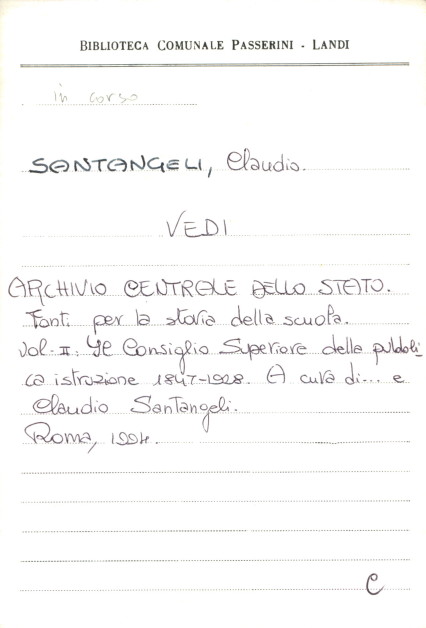 BIBLIOTECA COMUNALE PASSERINI - LANDI
in corso
SANTANGELI, Claudio.
VEDI
ARCHIVIO CENTRALE DELLO STATO.
Fonti per la storia della scuola.
Vol. II. Il Consiglio Superiore della pubbli_
ca istruzione 1847-1928. A cura di... e
Claudio Santangeli.
Roma, 1994.
C